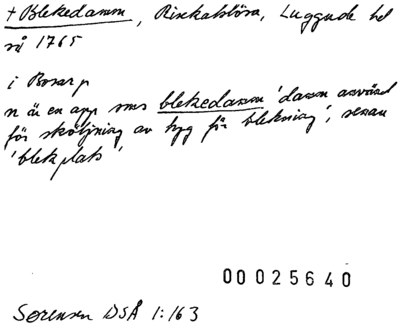 + Blekedamm, Risekatslösa, Luggude hd
rå 1765
i Bosarp
n är en app sms blekedamm 'damm använd
för sköljning av tyg för blekning', senan
'blekplats'
00025640
Sørensen DSÅ 1:163